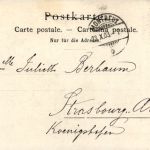 Postkarte
Carte postale. — Cartolina postale.
Nur für die Adresse
Mlle Juliette Bernbaum
Strasbourg
Koenigshofen